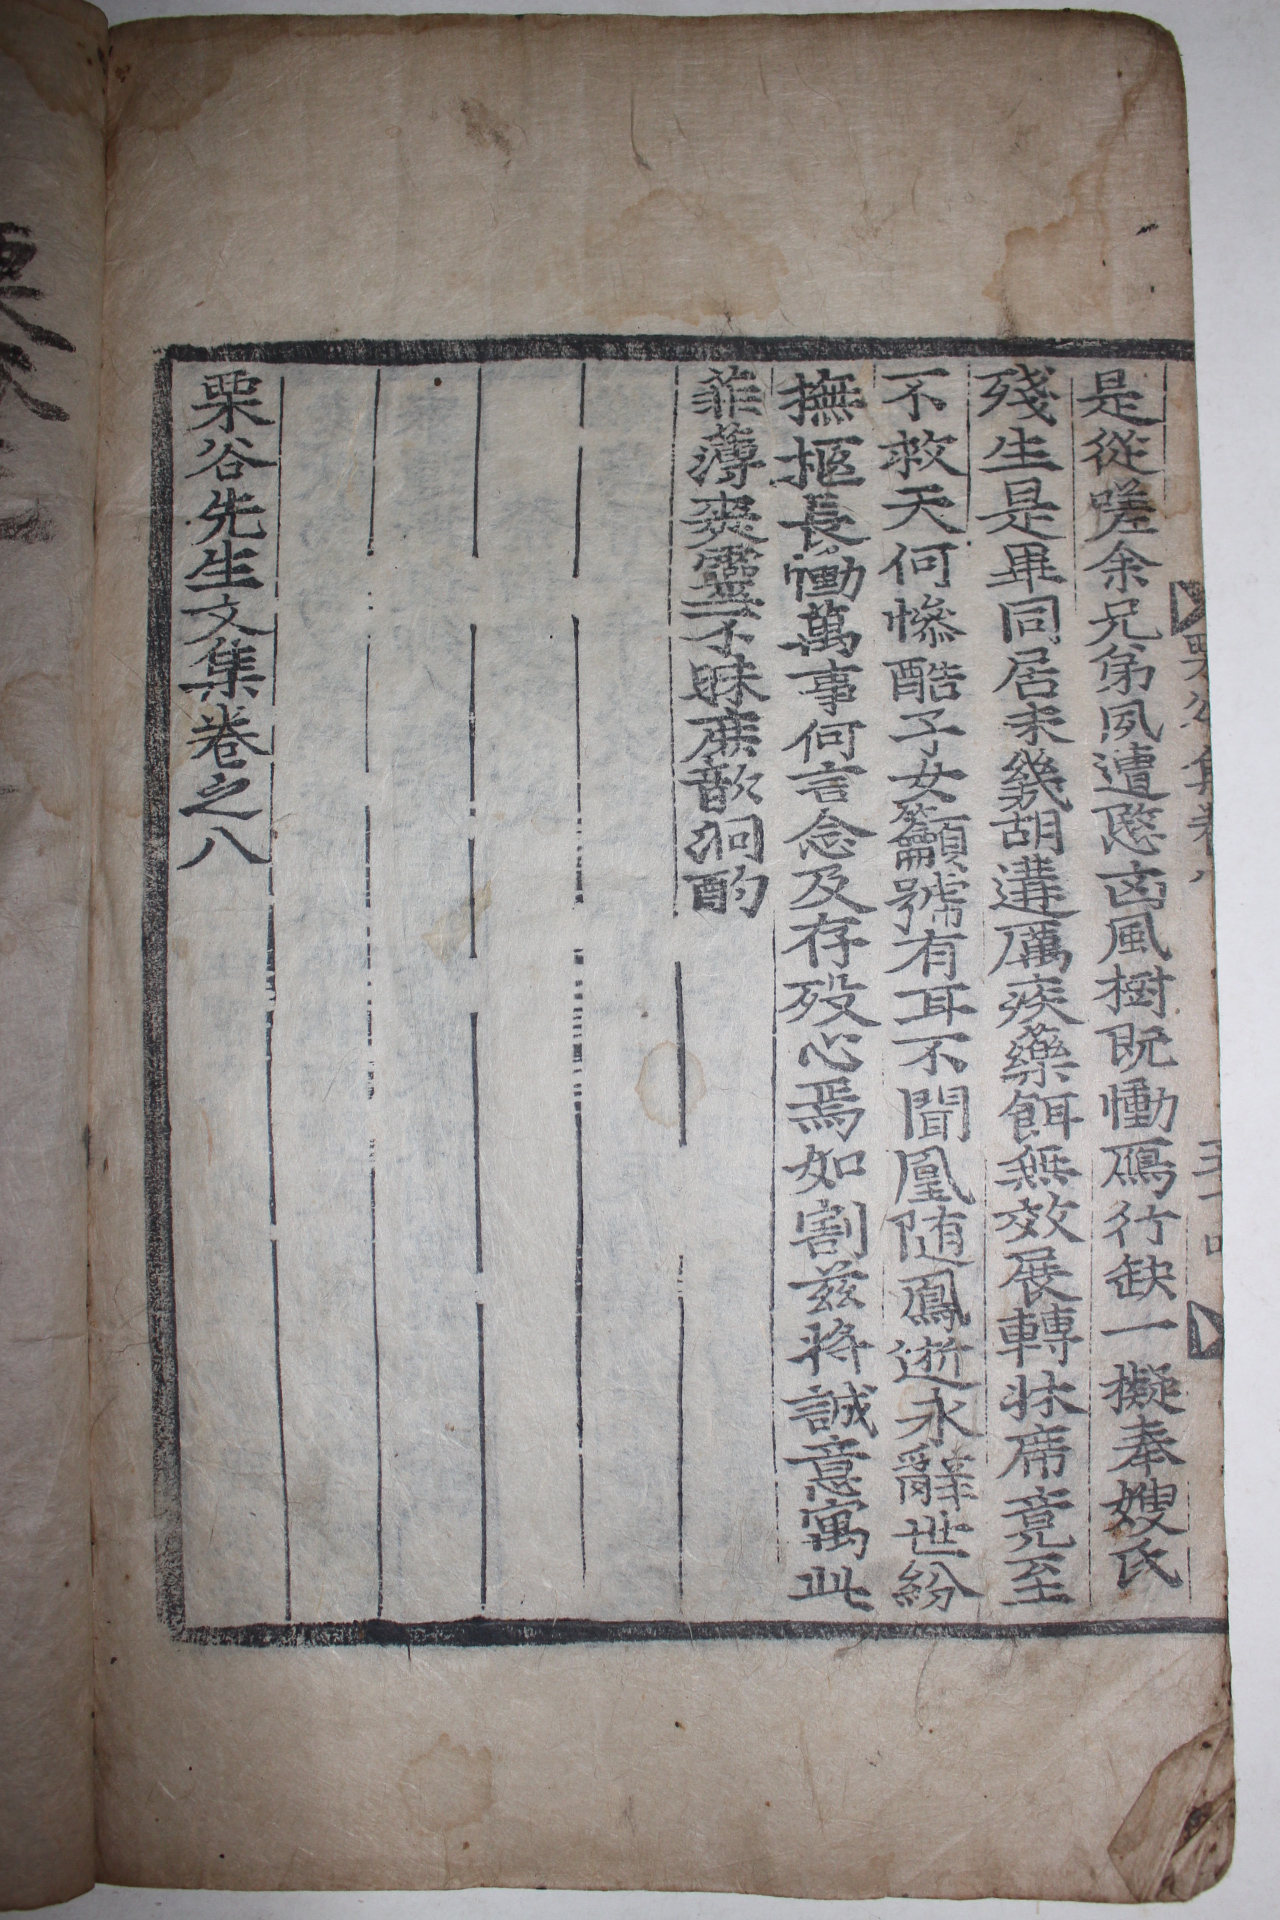 是從嗟余兄弟夙遭愍凶風樹既慟鴈行缺一擬奉嫂氏
殘生是畢同居未幾胡遘厲疾藥餌無效展轉牀席竟至
不救天何慘酷子女籲號有耳不聞凰隨鳳逝永辭世紛
撫柩長慟萬事何言念及存歿心焉如割茲將誠意寓此
菲薄爽靈不昧庶歆泂酌
栗谷先生文集卷之八